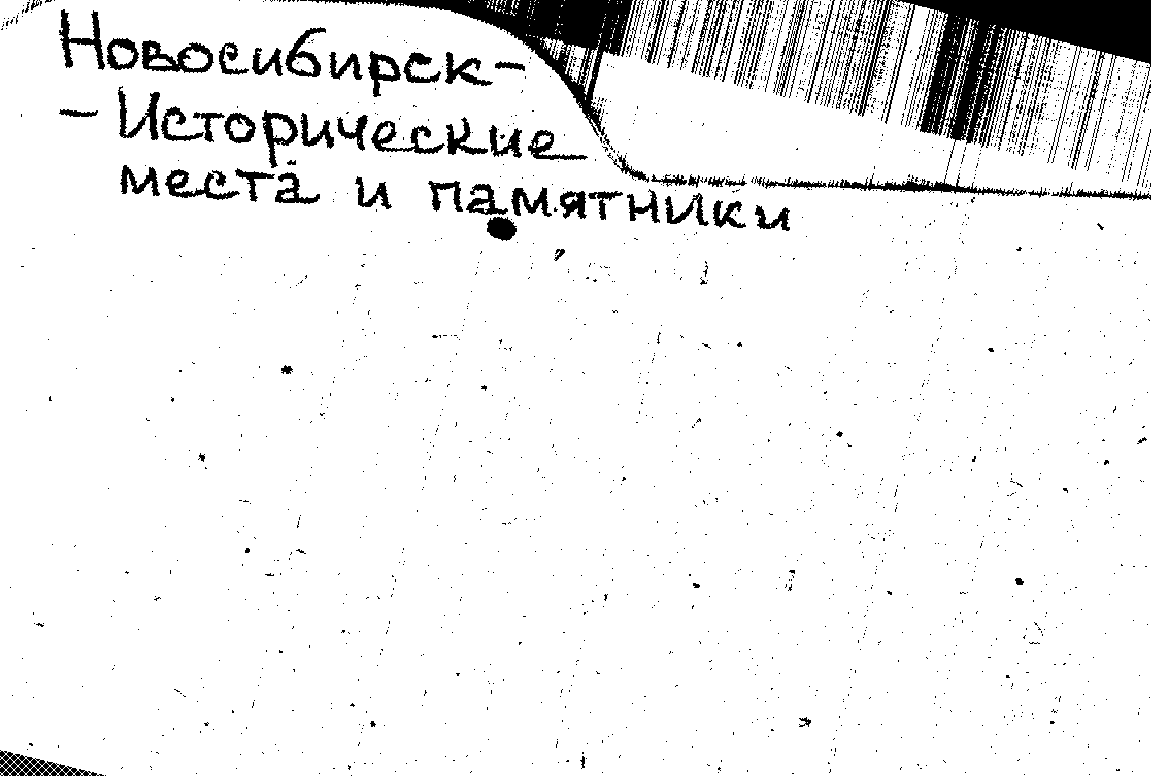 Новосибирск-
- Исторические
места и памятники